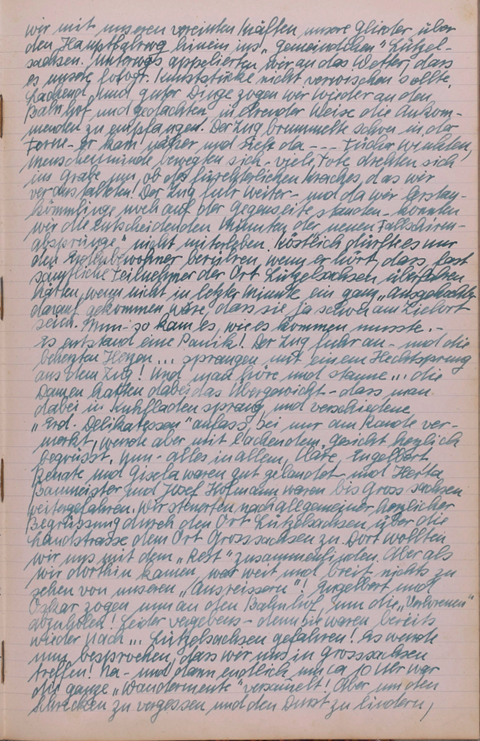 wir mit unseren vereinten Kräften unsere Glieder über
den Hauptfahrweg hinein ins "gemeindlichen" Lützel-
sachsen. Unterwegs appelierten wir an das Wetter, dass
es unsere fotogr. Kunststücke nicht verwischen sollte.
Lachend und guter Dinge zogen wir wieder an den
Bahnhof und gedachten in Weise die Ankom-
menden zu empfangen. Der Zug brummelte schon in der
Ferne - er kam näher und sieh da - - - Tücher winkten,
Menschenmünde bewegten sich - viele Tote drehten sich
im Grabe um ob des fürchterlichen Kraches, das wir
veranstalteten! Der Zug fuhr weiter - und da wir Erstan-
kömmlinge noch auf der Gegenseite standen - konnten
wir die entscheidenden Minuten der neuen "Fallschirm-
absprünge" nicht miterleben. Köstlich dürfte es nur
den berühren, wenn er hört, dass fast
sämtliche Teilnehmer den Ort Lützelsachsen überfahren
hätten, wenn nicht in letzter Minute ein ganz "Ausgekochter"
darauf gekommen wäre, dass sie ja schon am Zielort
seien. Nun - so kam es, wie es kommen musste. -
Es entstand eine Panik! Der Zug fuhr an - und die
beherzten Herzen ... sprangen mit einem Hechtsprung
aus dem Zug! Und man höre und staune ... die
Damen hatten dabei das Übergewicht - dass man
dabei in Kuhfladen sprang und verschiedene
"Erd. Delikatessen" anfasst, sei nur am Rande ver-
merkt, wurde aber mit lachendem Gesicht herzlich
begrüsst. Nun - alles in allem, Käte, Engelbert
Renate und Gisela waren gut gelandet - und Herta
Baumeister und Josef Hofmann waren bis Gross sachsen
weitergefahren. Wir steuerten nach allgemeiner herzlicher
Begrüssung durch den Ort Lützelsachsen über die
Landstrasse dem Ort Grosssachsen zu. Dort wollten
wir uns mit dem "Rest" zusammenfinden. Aber als
wir dorthin kamen, war weit und breit nichts zu
sehen von unseren "Ausreissern"! Engelbert und
Oskar zogen nun an den Bahnhof, um die "Verlorenen"
abzuholen! Leider vergebens - denn sie waren bereits
wieder nach ... Lützelsachsen gefahren! Es wurde
nun besprochen, dass wir uns in Grosssachsen
treffen! Na - und dann endlich um ca 10 Uhr war
die ganze "Wandermeute" versammelt! Aber um den
Schrecken zu vergessen und den Durst zu lindern,